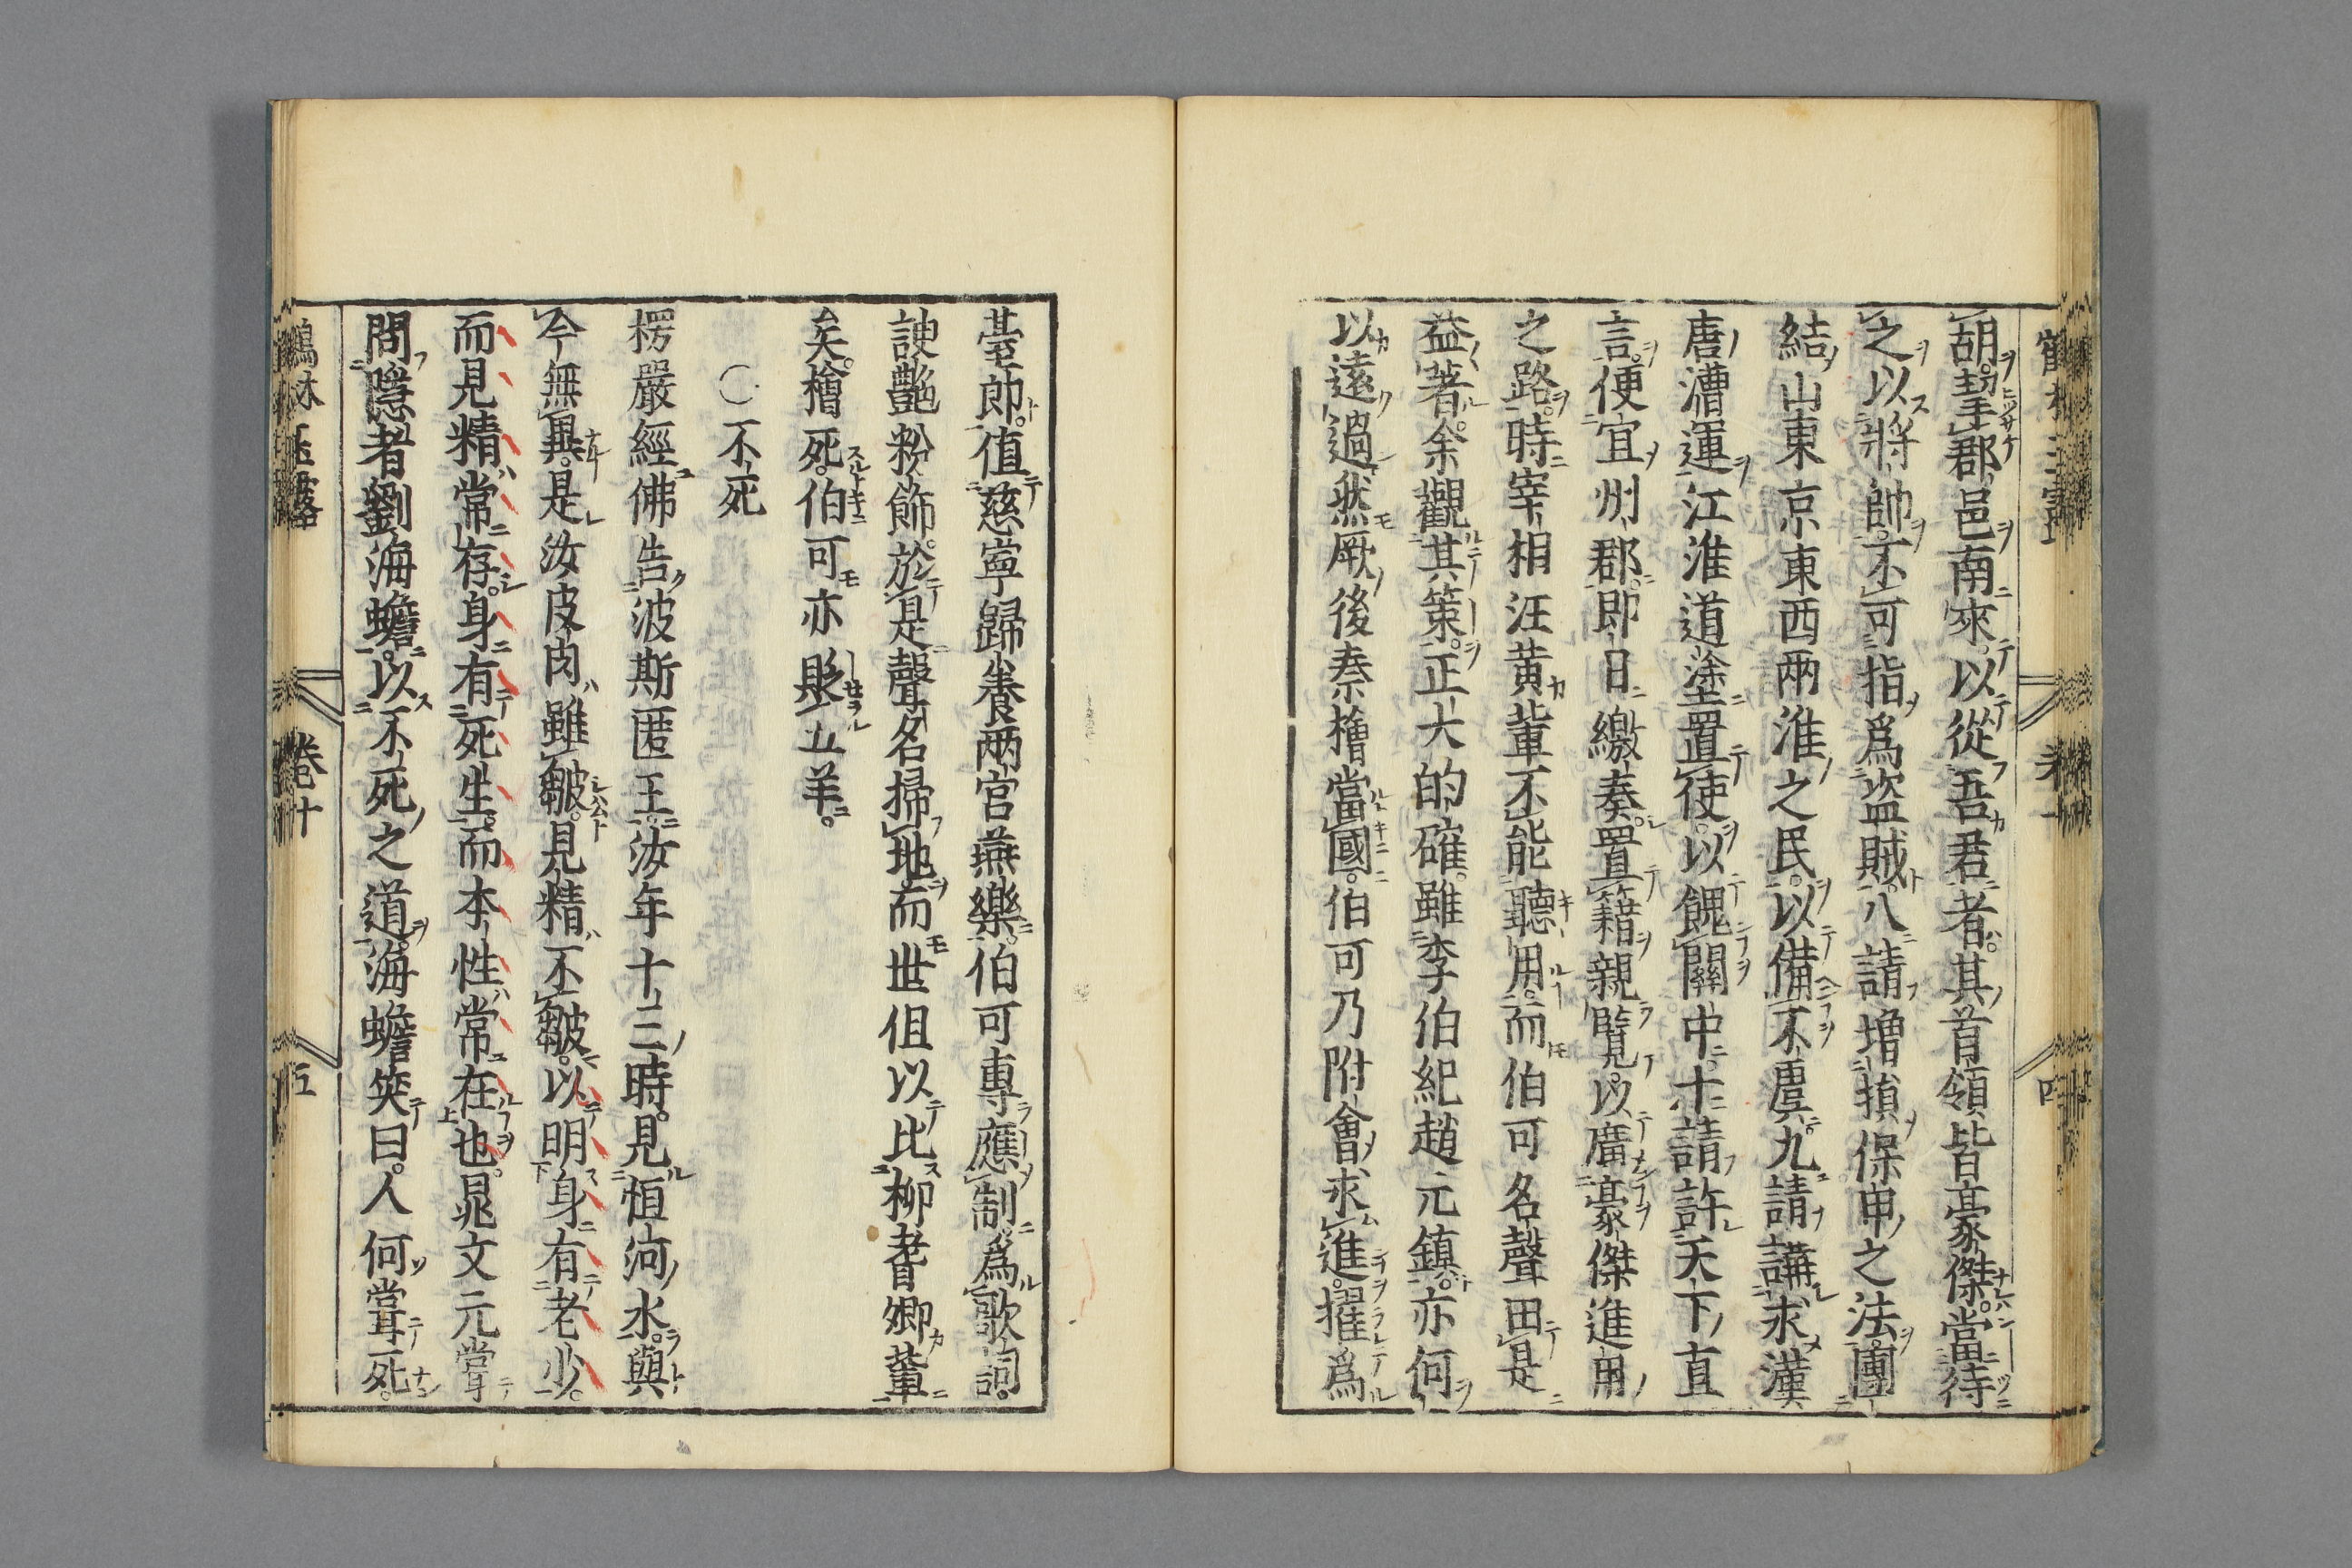 胡挈郡邑南來以從吾君者其首領皆豪傑當待
之以將帥不可指爲盜賊八請增損保甲之法團
結山東京東西兩淮之民以備不虞九請講求漢
唐漕運江淮道塗置使以餽關中十請許天下直
言便宜州郡即日繳奏置籍親覽以廣豪傑進用
之路時宰相汪黄輩不能聽用而伯可名聲由是
益著余觀其策正大的確雖李伯紀趙元鎮亦何
以遠過然厥後秦檜當國伯可乃附會求進擢爲
臺郎值慈寧歸養兩宮燕樂伯可專應制爲歌詞
諛艷粉飾於是聲名掃地而世但以比柳耆卿輩
矣檜死伯可亦貶五羊
〇不死
楞嚴經佛告波斯匿王汝年十三時見恒河水與
今無異是汝皮肉雖皺見精不皺以明身有老少
而見精常存身有死生而本性常在也晁文元嘗
問隱者劉海蟾以不死之道海蟾笑曰人何嘗死
鶴林玉露 卷十 五